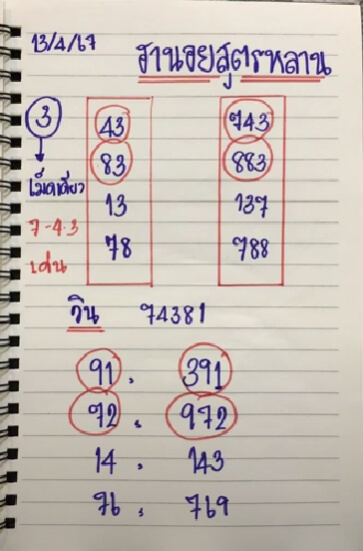 13/4/67
ฮานอยสูตรหลาน
3 43 743
83 883
เม็ดเดียว
13 137
7-4.3
78 788
เด่น
วิน 74381
91 . 391
92 . 972
14 . 143
76 , 769